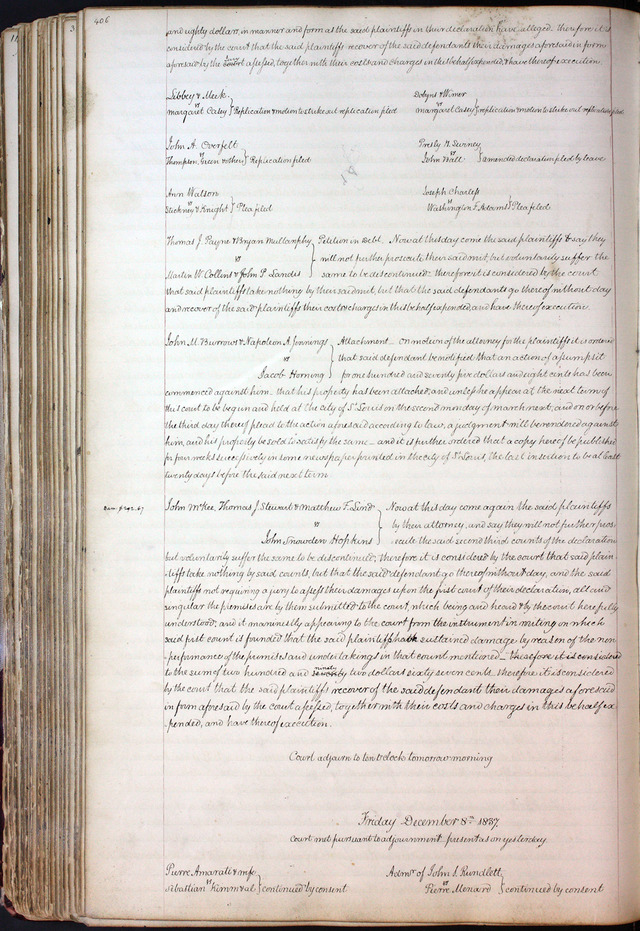 406
and eighty dollars, in manner and form as the said plaintiffs in their declaration have alleged. therefore it is
considered by the court that the said plaintiffs recover of the said defendants their damages aforesaid in form
aforesaid by the court assessed, together with their costs and charges in this behalf expended, & have thereof execution
Libbey & Meek
vs
Margaret Casey } Replication & motion to strike out replication filed
Dobyns & Wimer
vs
Margaret Casey } replication & motion to strike out replication filed
John A. Overfelt
vs
Thompson, Green & others } Replication filed
Presly N. Swiney
vs
John Wall } amended declaration filed by leave
Ann Watson
vs
Stickney & Knight } Plea filed
Joseph Charless
vs
Washington F. Adams } Plea filed
Thomas J. Payne & Bryan Mullanphy } Petition in Debt. Now at this day come the said plaintiffs & say they
vs will not further prosecute their said suit, but voluntarily suffer the
Martin W. Collins & John P. Landis same to be discontinued - therefore it is considered by the court
that said plaintiffs take nothing by their said suit, but that the said defendants go thereof without day
and recover of the said plaintiffs their costs & charges in this behalf expended, and have thereof execution.
John M. Burrows & Napoleon A. Jennings } Attachment - On motion of the attorney for the plaintiffs it is ordered
vs that said defendant be notified that an action of assumpsit
Jacob Horning for one hundred and seventy five dollars and eight cents has been
commenced against him - that his property has been attached, and unless he appear at the next term of
this court to be begun and held at the city of St Louis on the second monday of march next, and on or before
the third day thereof plead to the action aforesaid according to law, a judgment will be rendered against
him, and his property be sold to satisfy the same - and it is further ordered that a copy hereof be published
for four weeks successively in some newspaper printed in the city of St Louis, the last insertion to be at least
twenty days before the said next term
Dam. $292.67
John McKee, Thomas J. Stewart & Matthew F. Lind } Now at this day come again the said plaintiffs
vs by their attorney, and say they will not further pros-
John Snowden Hopkins ecute the said second third counts of the declaration
but voluntarily suffer the same to be discontinued; therefore it is considered by the court that said plain-
tiffs take nothing by said counts, but that the said defendant go thereof without day, and the said
plaintiffs not requiring a jury to assess their damages upon the first count of their declaration, all and
singular the premises are by them submitted to the court, which being and heard & by the court here fully
understood; and it manifestly appearing to the court from the instrument in writing on which
said first count is founded that the said plaintiffs hath sustained damage by reason of the non
performance of the promises and undertakings in that count mentioned - therefore it is considered
to the sum of two hundred and ninety seventy two dollars sixty seven cents. therefore it is considered
by the court that the said plaintiffs recover of the said defendant their damages aforesaid
in form aforesaid by the court assessed, together with their costs and charges in this behalf ex-
-pended, and have thereof execution.
Court adjourn to ten o'clock tomorrow morning
Friday December 8th 1837.
Court met pursuant to adjournment present as on yesterday
Pierre Amarali & wife
vs
Sebastian Kimm & al } continued by consent
Admr of John S. Rundlett
vs
Pierre Menard } continued by consent